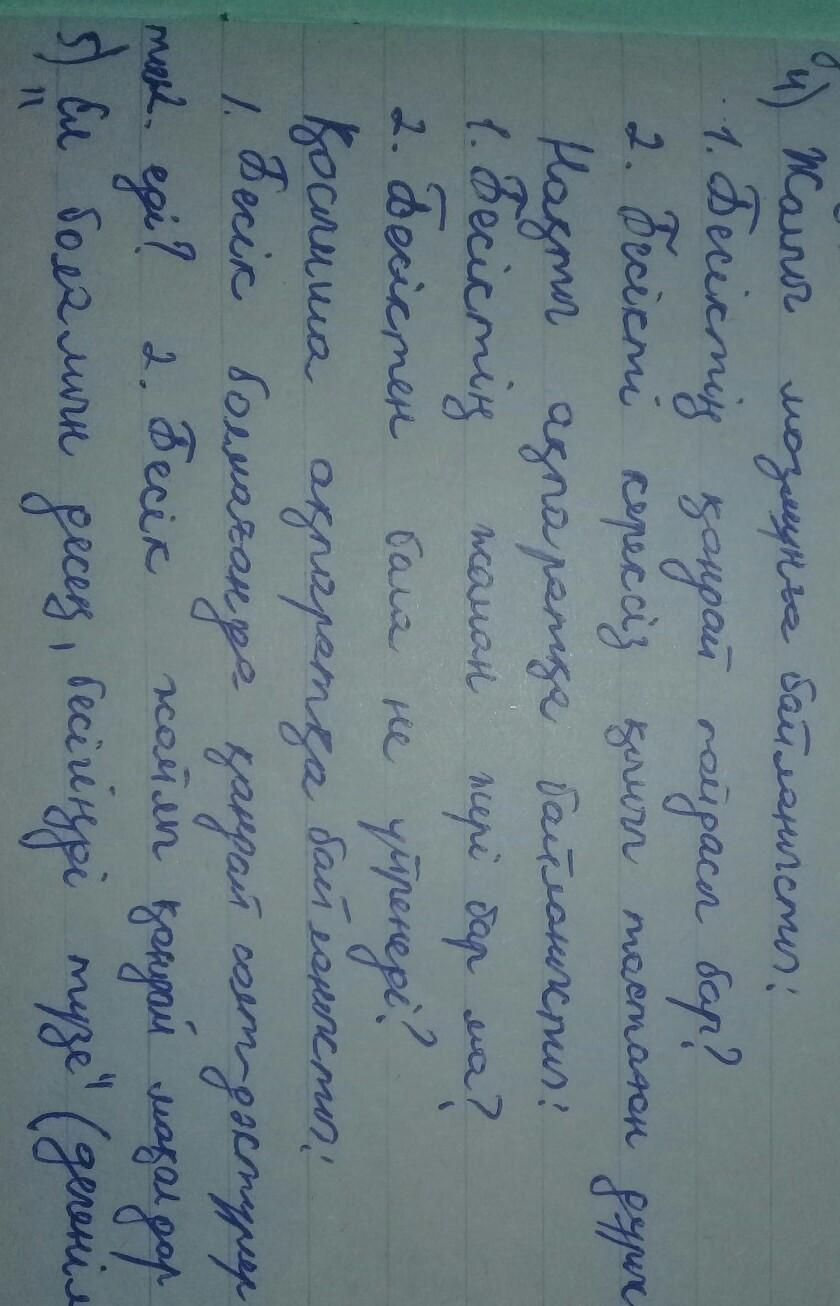 4) Жалпы мазмұнға байланысты:
1. Бесіктің қандай пайдасы бар?
2. Бесікті керексіз қылып тастаған дұрыс
Нақты ақпаратқа байланысты:
1. Бесіктің жаман жері бар ма?
2. Бесіктен бала не үйренеді?
Қосымша ақпаратқа байланысты:
1. Бесік болмағанда қандай салт-дәстүрлер
еді? 2. Бесік жайлы қандай мақалдар
5) "Ел боламын десең, бесігіңді түзе" (дегеніміз